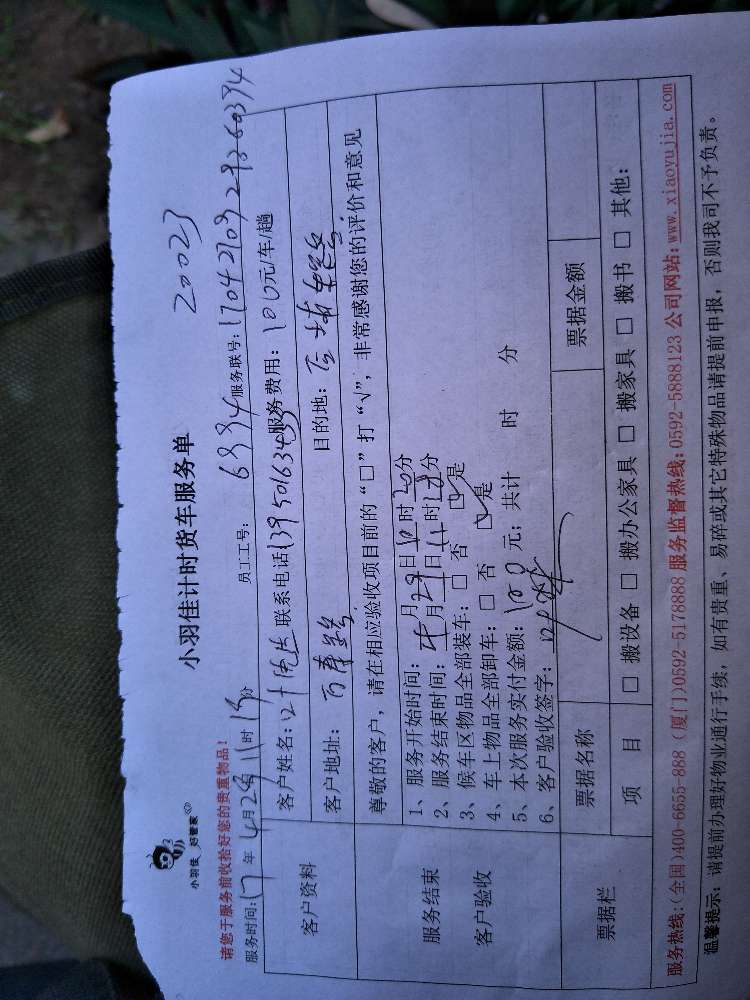 小羽佳 好管家
小羽佳计时货车服务单
20023
请您于服务前收拾好您的贵重物品!
服务时间:17年 4月29日 11时19分 员工工号: 6334 服务联号:1704270929260394
客户资料
客户姓名: 联系电话:13950163453 服务费用:100元/车/趟
客户地址: 目的地:
服务结束
客户验收
尊敬的客户,请在相应验收项目前的“□”打“√”,非常感谢您的评价和意见
1、服务开始时间:4月29日10时20分
2、服务结束时间:4月29日11时18分
3、候车区物品全部装车:□ 否 ☑ 是
4、车上物品全部卸车:□ 否 ☑ 是
5、本次服务实付金额:100元;共计 时 分
6、客户验收签字:
票据栏
票据名称 票据金额
项 目 □ 搬设备 □ 搬办公家具 □ 搬家具 □ 搬书 □ 其他:
服务热线:(全国)400-6655-888 (厦门)0592-5178888 服务监督热线:0592-5888123 公司网站:www.xiaoyujia.com
温馨提示:请提前办理好物业通行手续,如有贵重、易碎或其它特殊物品请提前申报,否则我司不予负责。